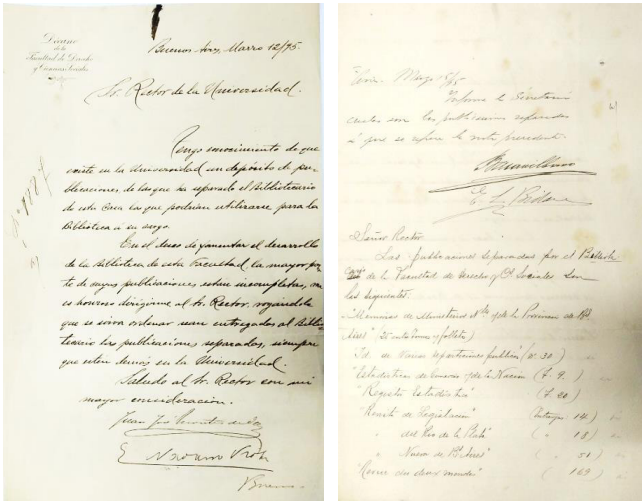 Decano
de la
Facultad de Derecho
y Ciencias Sociales
Buenos Aires, Marzo 12/95.
Sr. Rector de la Universidad.
Tengo conocimiento de que
existe en la Universidad un depósito de pu-
blicaciones, de las que ha separado el Bibliotecario
de esta Casa las que podrían utilizarse para la
Biblioteca a su cargo.
En el deseo de fomentar el desarrollo
de la Biblioteca de esta Facultad, la mayor par-
te de cuyas publicaciones están incompletas, me
es honroso dirigirme al Sr. Rector, rogándole
que se sirva ordenar sean entregadas al Biblio-
tecario las publicaciones separadas, siempre
que estén demás en la Universidad.
Saludo al Sr. Rector con mi
mayor consideración.
Juan José
E. Navarro Viola
Buenos
Marzo 15/95
Informe la Secretaria
cuales son las publicaciones separadas
á que se refiere la nota precedente.
E. L.
Señor Rector
Las publicaciones separadas por el
de la Facultad de Derecho y Cs. Sociales son
las siguientes:
"Memorias de Ministerios de la Provincia de Bs.
Aires"
"Id. de Varias reparticiones públicas" (v. 30)
"Estadística del Comercio de la Nación (T. 9.)
"Registro Estadístico" (T. 20)
"Revista de Legislación" (Entregas 14)
" del Rio de la Plata" ( " 18)
" Nueva de Bs. Aires" ( " 51)
"Revue des deux mondes" ( 169)